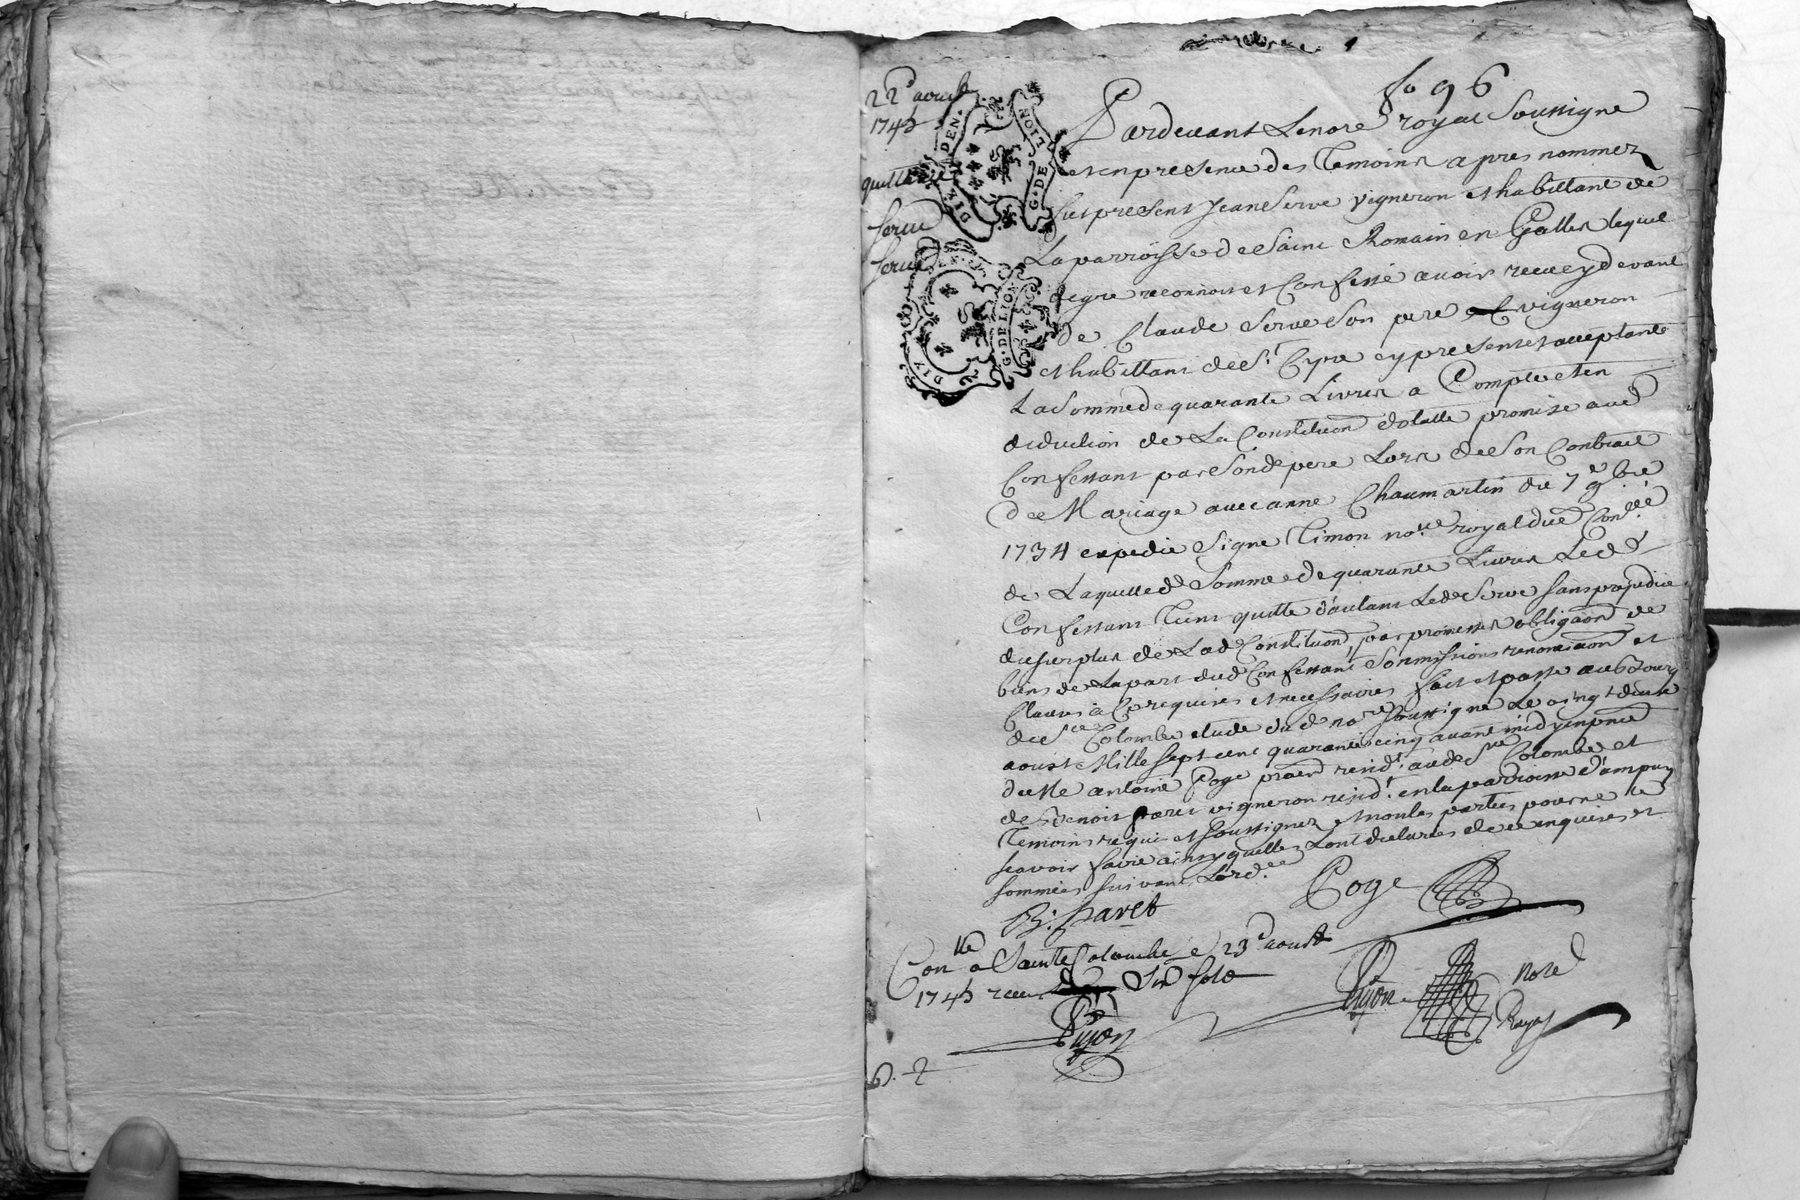 fo 96
22e aoust
1745
quittance
Serve
Serve
DIX DEN.
G. DE LION
DIX DEN.
G. DE LION
Pardevant Lenore royal Soussigne
et en presence des Temoins apres nommez
fut present Jean Serve vigneron et habittant de
La parroisse de Saint Romain en Galles lequel
de gre reconnoit et Confesse avoir receu cy devant
de Claude Serve Son pere vigneron
et habittant de St. Cyre cy present et acceptant
La Somme de quarante Livres a Compte et en
diduction de La Constituon dotalle promise aud
Confessant par Sond pere Lors de Son Contract
de Mariage avec anne Chaumartin du 7e 9bre
1734 expedie Signe Timon nore royal due Conllée
de Laquelle de Somme de quarante Livres Led
Confessant Tient quitte d'autant Led Serve Sans prejudice
du Surplus de Lad Constituon, par promesses obligaon de
biens de La part dud Confessant Sonmissions renonciaon et
Clauses a Ce requises et necessaires fait et passe au bourg
de Ste Colombe etude dud nore Soussigne Le vingt deux
aoust Mille sept cent quarante cinq avant midy en pnce
de Me antoine Poge praen resid. aud Ste Colombe et
de Benoit paret vigneron resid. en la parroisse d'ampuy
Temoins requis et Soussignez et non les parties pour ne le
scavoir faire ainsy quelles ont declares de ce enquises et
sommées suivant Lord.ce
B: paret
Poge
Conlle a Sainte Colombe le 23e aoust
1745 receu Six sols
Pijon
Pijon
Nore
Royal